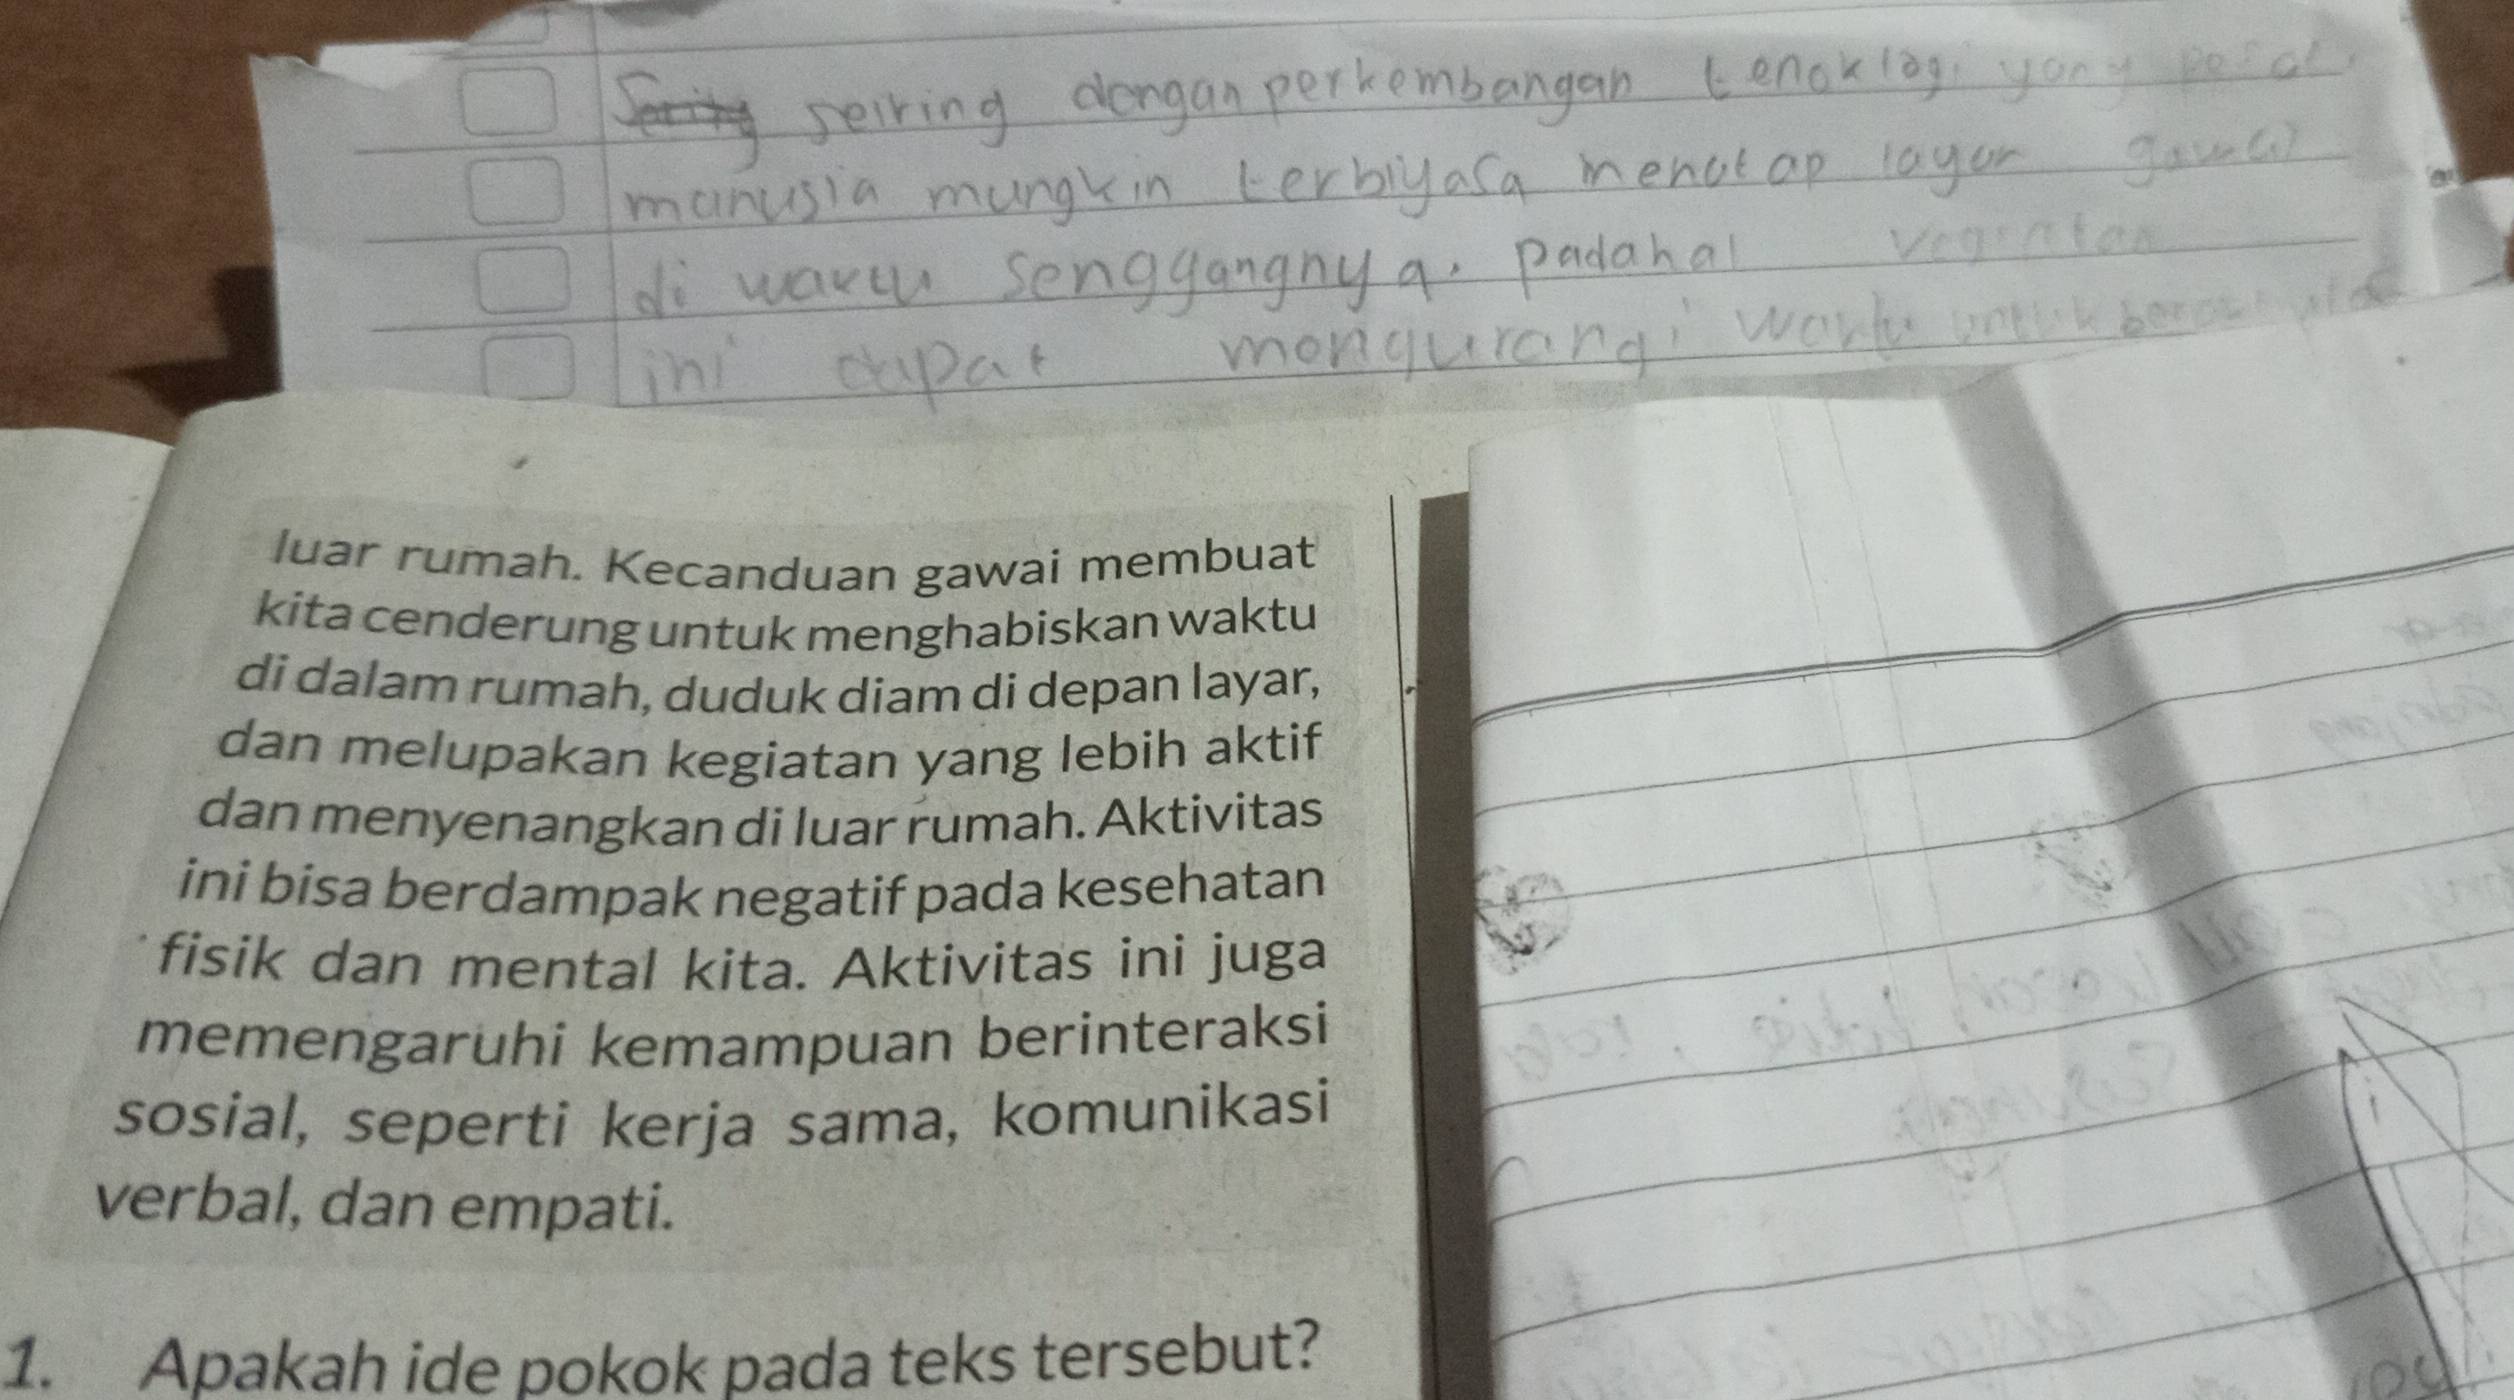 seiring dengan perkembangan tenoklogi yang pesat
manusia mungkin terbiyasa menatap layar gawai
di waktu senggangnya. padahal kegiatan
ini dapat mengurangi waktu untuk
luar rumah. Kecanduan gawai membuat
kita cenderung untuk menghabiskan waktu
di dalam rumah, duduk diam di depan layar,
dan melupakan kegiatan yang lebih aktif
dan menyenangkan di luar rumah. Aktivitas
ini bisa berdampak negatif pada kesehatan
fisik dan mental kita. Aktivitas ini juga
memengaruhi kemampuan berinteraksi
sosial, seperti kerja sama, komunikasi
verbal, dan empati.
1. Apakah ide pokok pada teks tersebut?